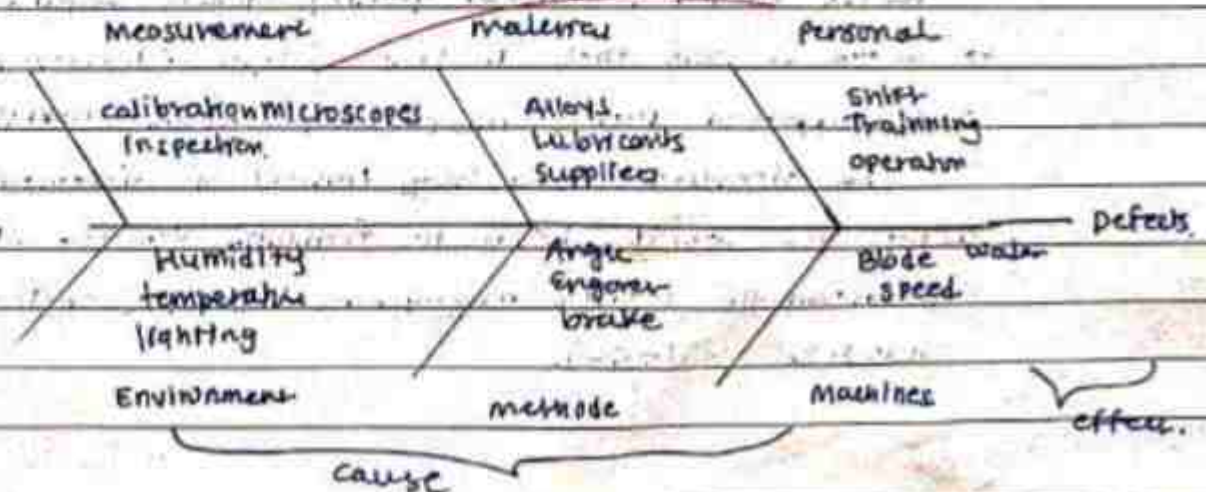 Measurement materras Personal
calibration microscopes
Inspection.
Alloys.
Lubricants
Suppliers
Shift
Trainning
operator
Defects.
Humidity
temperature
lighting
Angle
Engager
brake
Blade water
speed
Environment methode Machines
effect.
cause